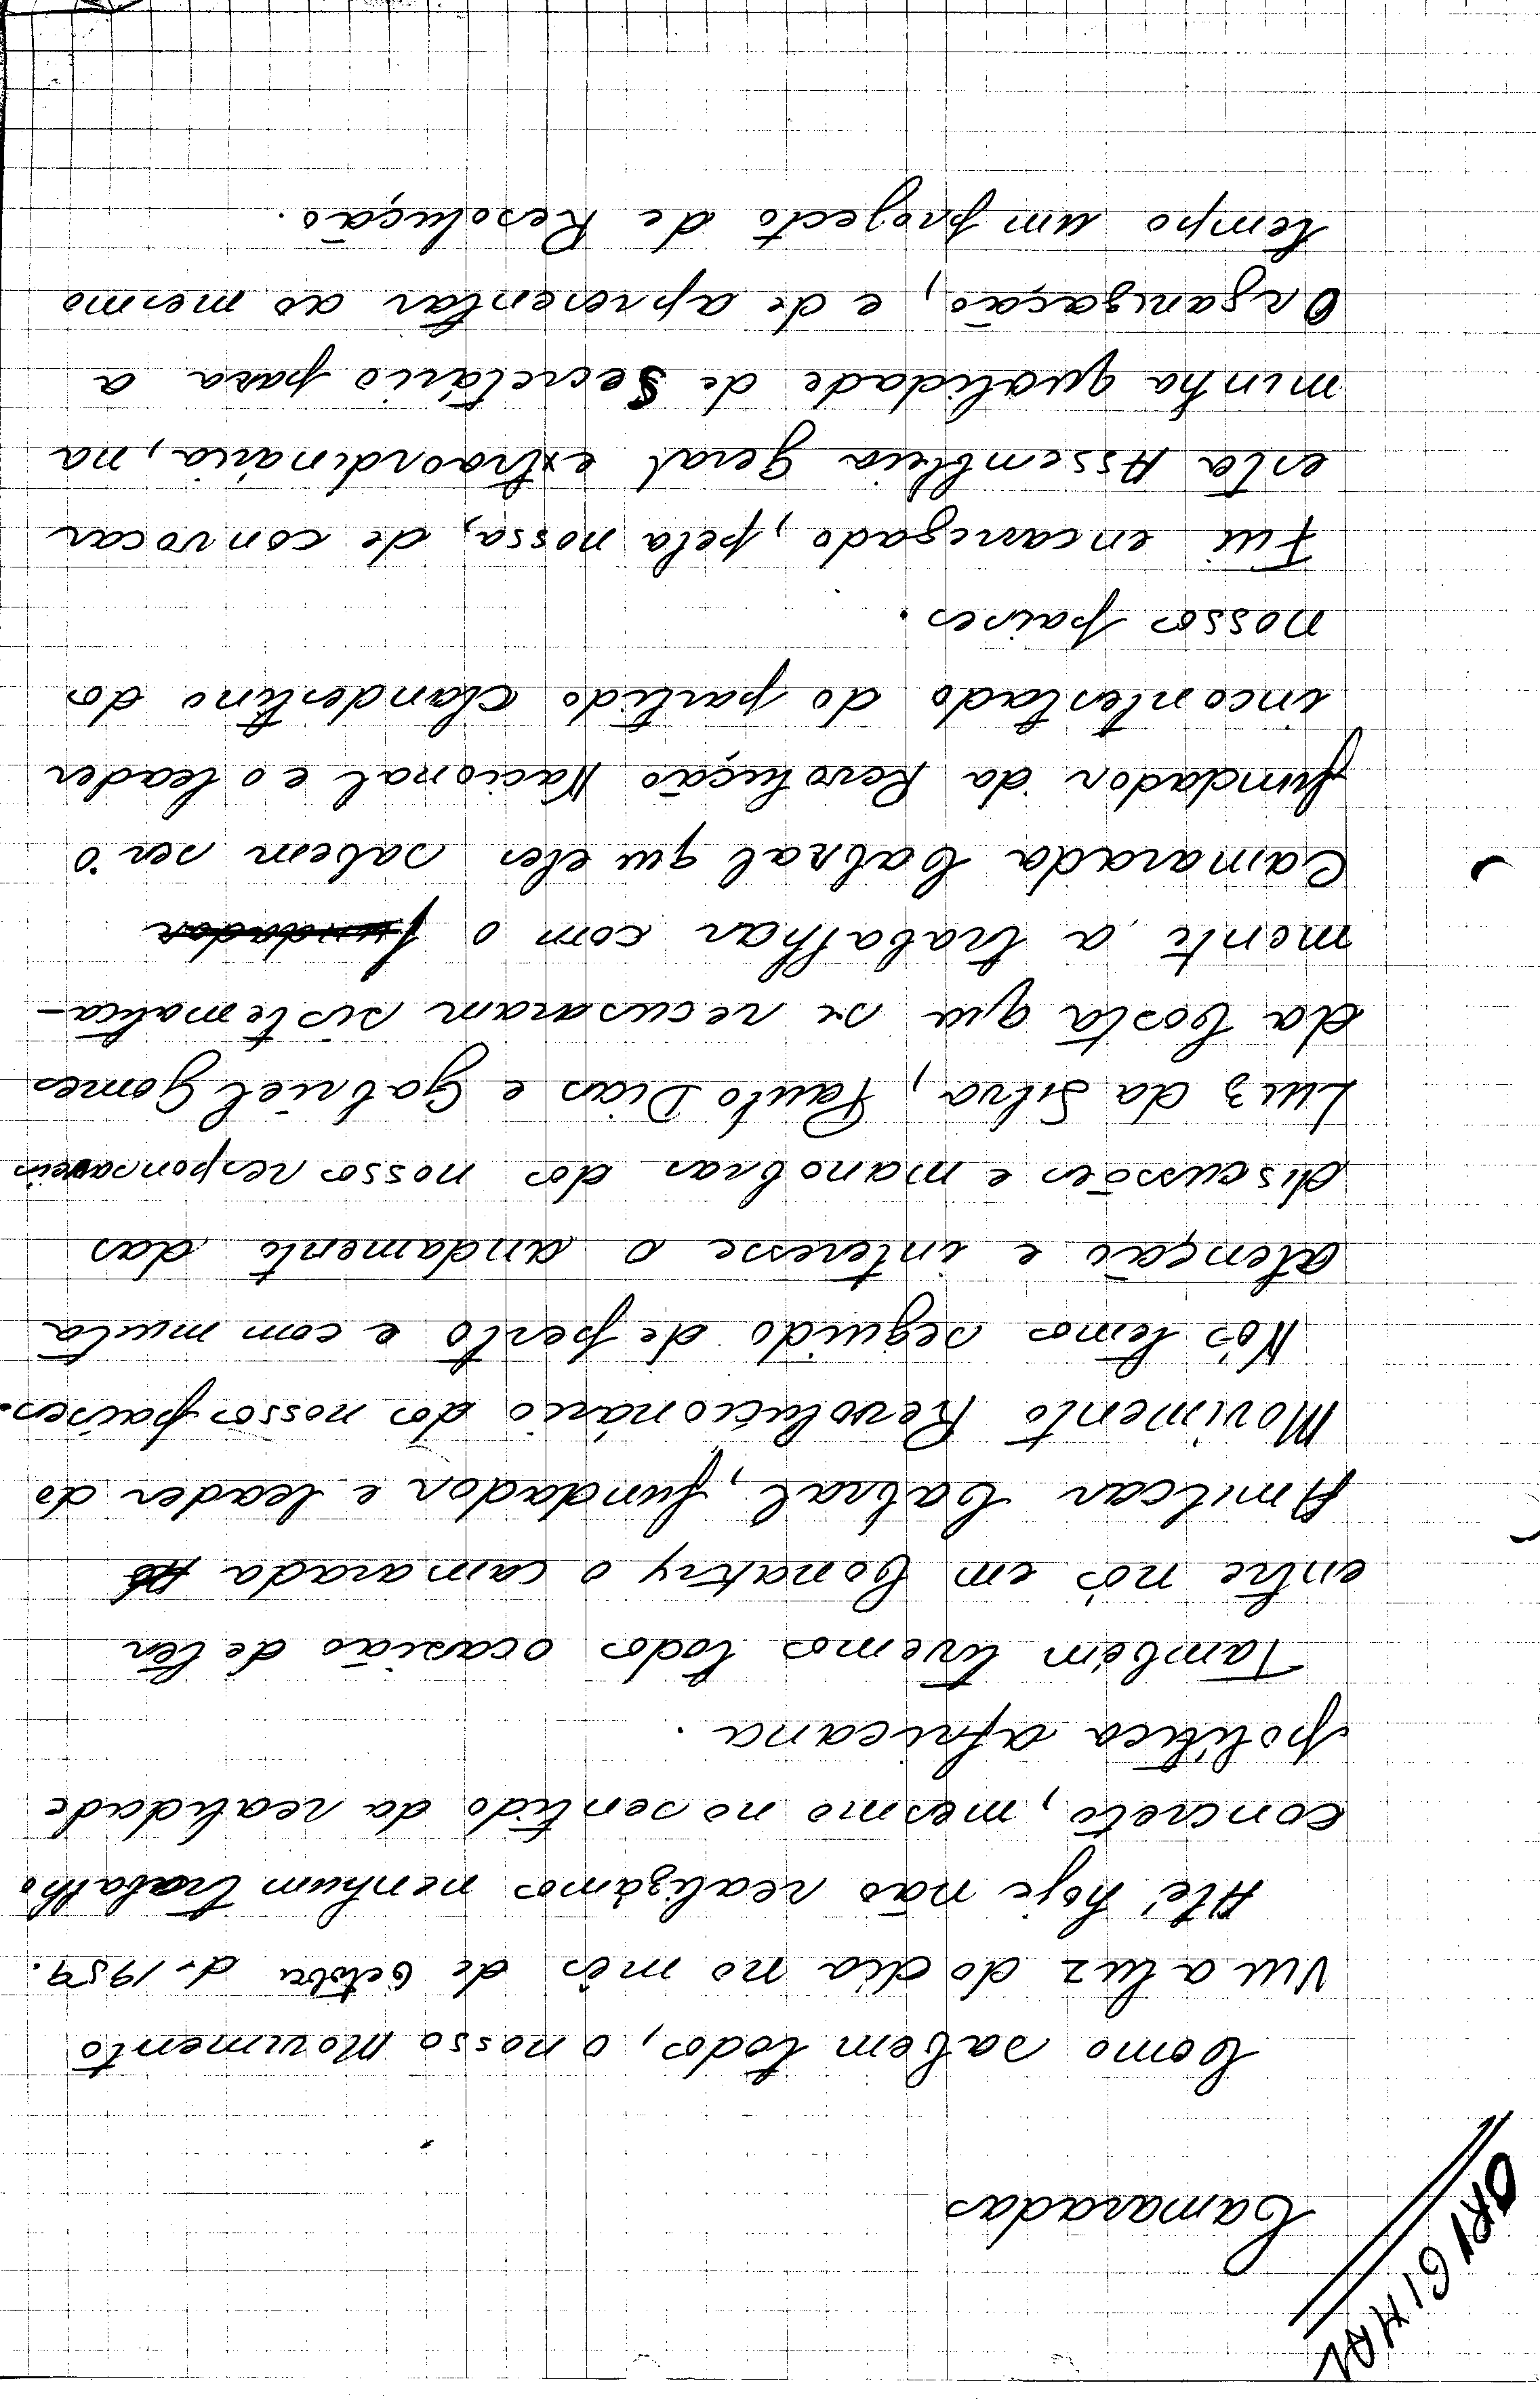 ORIGINAL
Camaradas
Como sabem todos, o nosso Movimento
viu a luz do dia no mês de Octobre de 1959.
Até hoje não realizámos nenhum trabalho
concreto, mesmo no sentido da realidade
política africana.
Também tivemos todos ocasião de têr
entre nós em Conakry o camarada
Amilcar Cabral, fundador e leader do
Movimento Revolucionário dos nossos países.
Nós temos seguido de perto e com muita
atenção e interesse o andamento das
discussões e manobras dos nossos responsaveis
Luiz da Silva, Paulo Dias e Gabriel Gomes
da Costa que se recusaram sistematica-
mente a trabalhar com o fundador
Camarada Cabral que eles sabem ser o
fundador da Revolução Nacional e o leader
incontestado do partido clandestino dos
nossos países.
Fui encarregado, pela nossa, de convocar
esta Assembleia geral extraordinária, na
minha qualidade de Secretário para a
Organização, e de apresentar ao mesmo
tempo um projecto de Resolução.